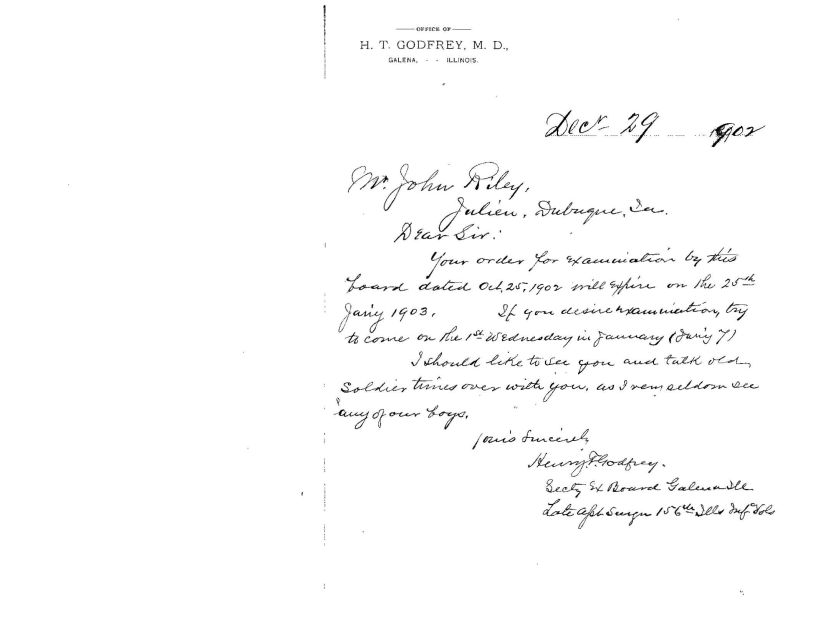 OFFICE OF
H. T. GODFREY, M. D.,
GALENA, - - ILLINOIS.
Decr 29 1902
Mr. John Riley,
Julien, Dubuque, Ia.
Dear Sir:
Your order for examination by this
board dated Oct, 25, 1902 will expire on the 25th
Jan'y 1903. If you desire examination, try
to come on the 1st Wednesday in January (Jan'y 7)
I should like to see you and talk old
soldier times over with you, as I very seldom see
any of our boys.
Yours Sincerely
Henry T. Godfrey.
Secty Ex Board Galena Ill
Late Asst Surgn 156th Ills Inf Vols